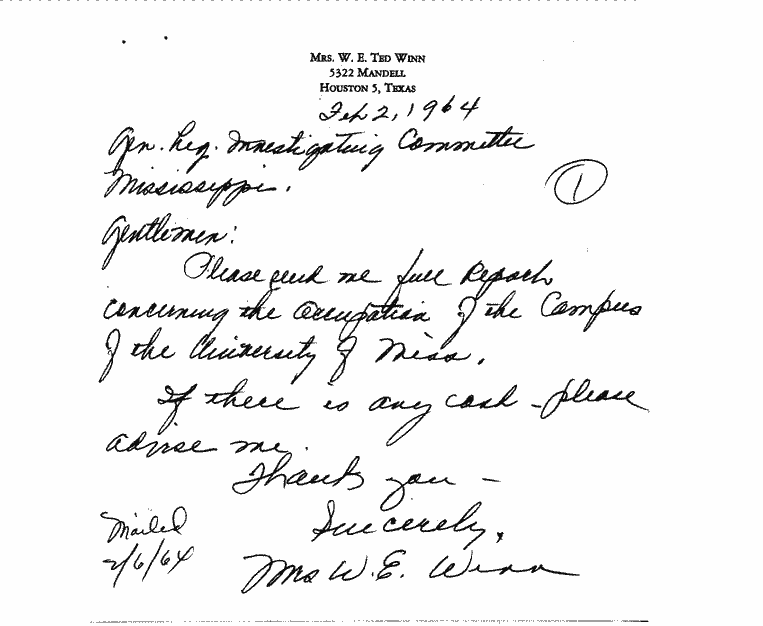 MRS. W. E. TED WINN
5322 MANDELL
HOUSTON 5, TEXAS
Feb 2, 1964
Gen. Leg. Investigating Committee
Mississippi.
1
Gentlemen:
Please send me full Report
concerning the Occupation of the Campus
of the University of Miss.
If there is any cost - please
advise me.
Thank you -
Sincerely,
Mrs W. E. Winn
Mailed
2/6/64